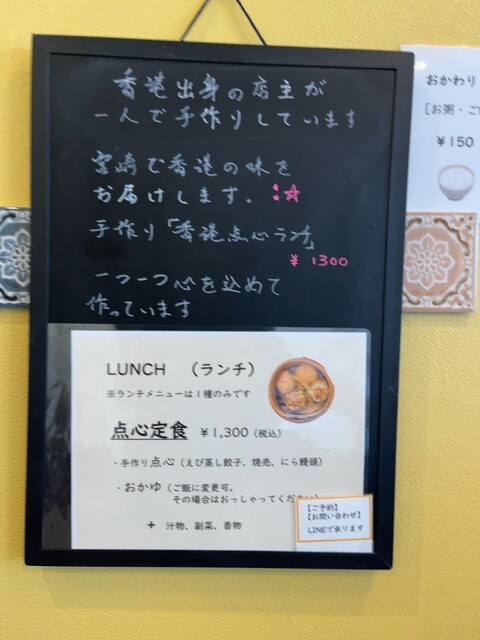 香港出身の店主が
一人で手作りしています
宮崎で香港の味を
お届けします。
手作り「香港点心ランチ」
¥ 1300
一つ一つ心を込めて
作っています
LUNCH （ランチ）
※ランチメニューは１種のみです
点心定食 ￥1,300（税込）
・手作り点心（えび蒸し餃子、焼売、にら饅頭）
・おかゆ（ご飯に変更可。
その場合はおっしゃってください）
＋ 汁物、副菜、香物
【ご予約】
【お問い合わせ】
LINEで承ります
おかわり
［お粥・ご
￥150